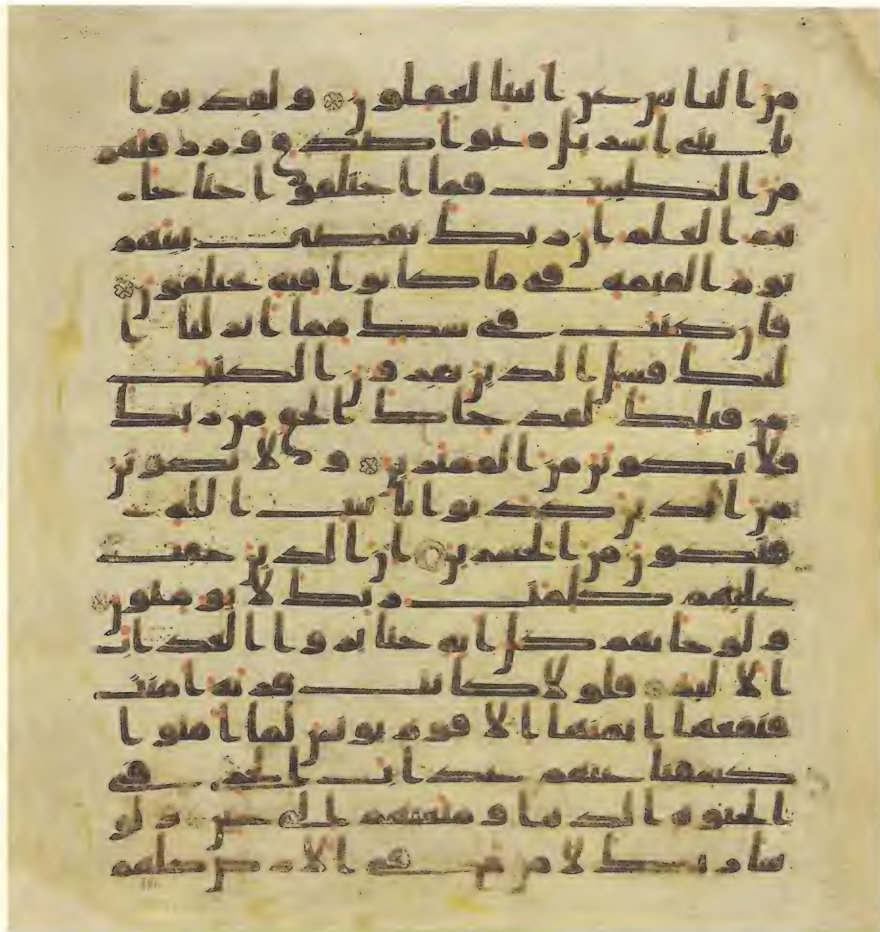 من الناس عن ايتنا لغفلون ولقد بوا
نا بني اسريل مبوا صدق ورزقنهم
من الطيبت فما اختلفوا حتى جا
هم العلم ان ربك يقضي بينهم
يوم القيمة في ما كانوا فيه يختلفون
فان كنت في شك مما انزلنا ا
ليك فسل الذين يقرون الكتب
من قبلك لقد جاك الحق من ربك
فلا تكونن من الممترين ولا تكونن
من الذين كذبوا بايت الله
فتكون من الخسرين ان الذين حقت
عليهم كلمت ربك لا يومنون
ولو جاتهم كل اية حتى يروا العذاب
الاليم فلولا كانت قرية امنت
فنفعها ايمنها الا قوم يونس لما امنوا
كشفنا عنهم عذاب الخزي في
الحيوة الدنيا ومتعنهم الى حين ولو
شا ربك لامن من في الارض كلهم